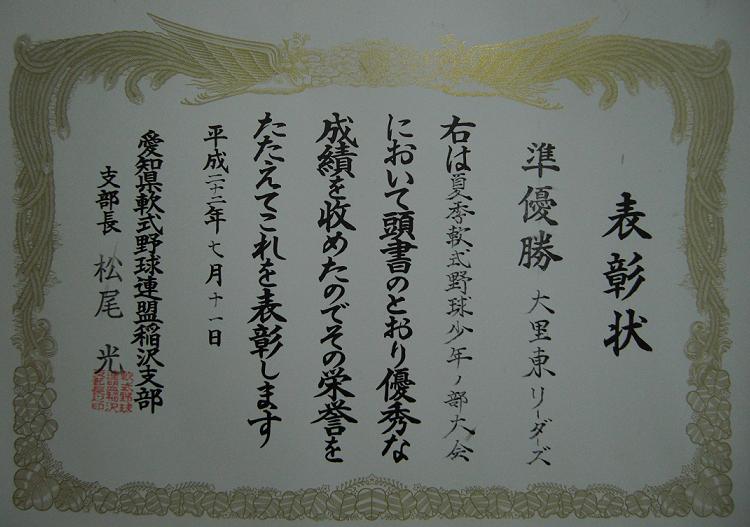 表彰状
準優勝 大里東リーダーズ
右は夏季軟式野球少年ノ部大会
において頭書のとおり優秀な
成績を收めたのでその栄誉を
たたえてこれを表彰します
平成二十二年七月十一日
愛知県軟式野球連盟稲沢支部
支部長 松尾光